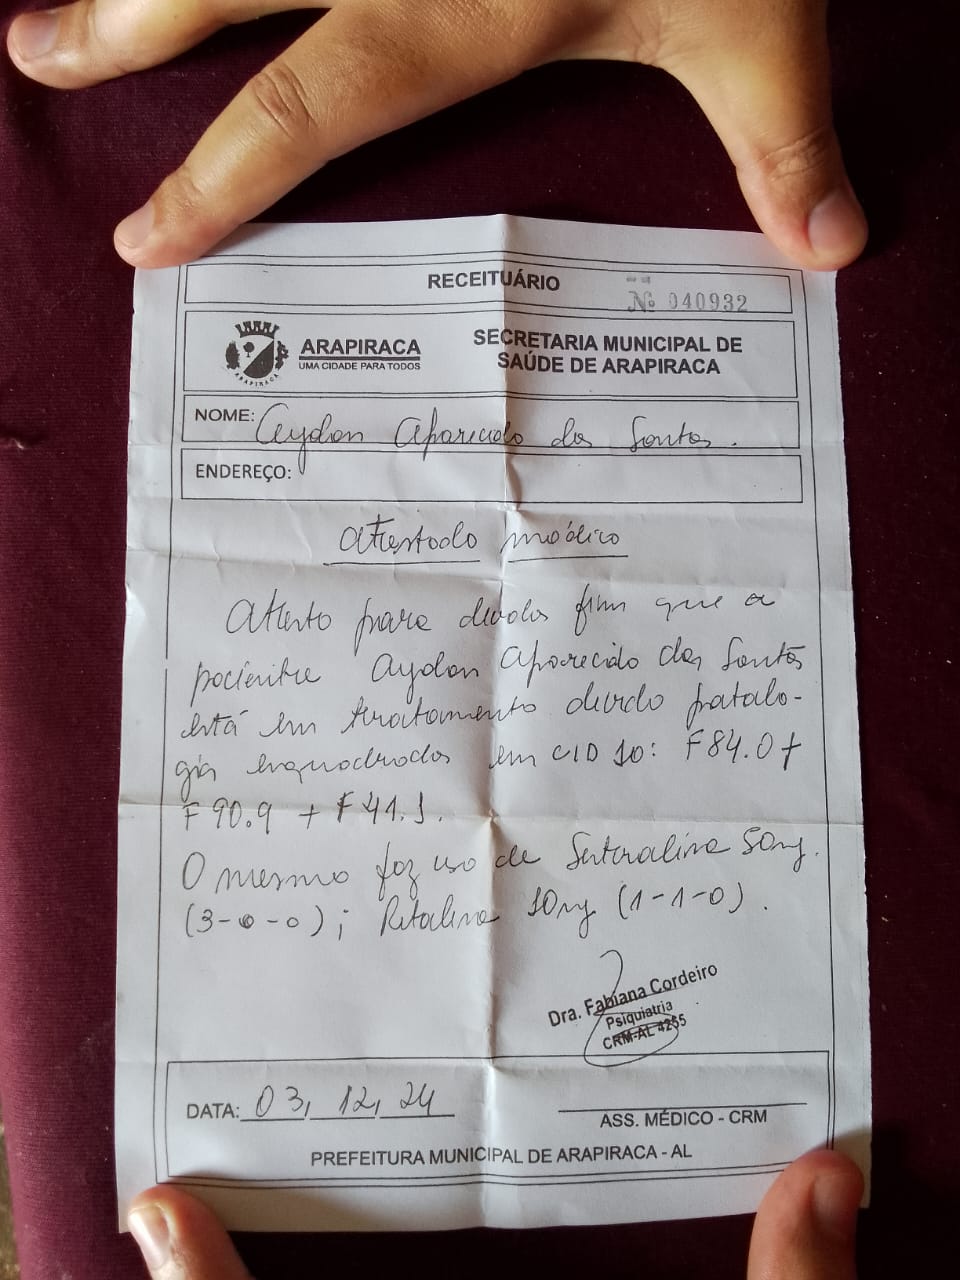 RECEITUÁRIO
Nº 040932
ARAPIRACA
UMA CIDADE PARA TODOS
ARAPIRACA
SECRETARIA MUNICIPAL DE
SAÚDE DE ARAPIRACA
NOME: Aydan Aparecido dos Santos.
ENDEREÇO:
Atestado médico
Atesto para devidos fins que a
paciente Aydan Aparecido dos Santos
está em tratamento devido patalo-
gias enquadradas em CID 10: F84.0 +
F90.9 + F41.1.
O mesmo faz uso de Sertralina 50mg.
(3-0-0); Ritalina 10mg (1-1-0).
Dra. Fabiana Cordeiro
Psiquiatria
CRM-AL 4255
DATA: 03, 12, 24
ASS. MÉDICO - CRM
PREFEITURA MUNICIPAL DE ARAPIRACA - AL